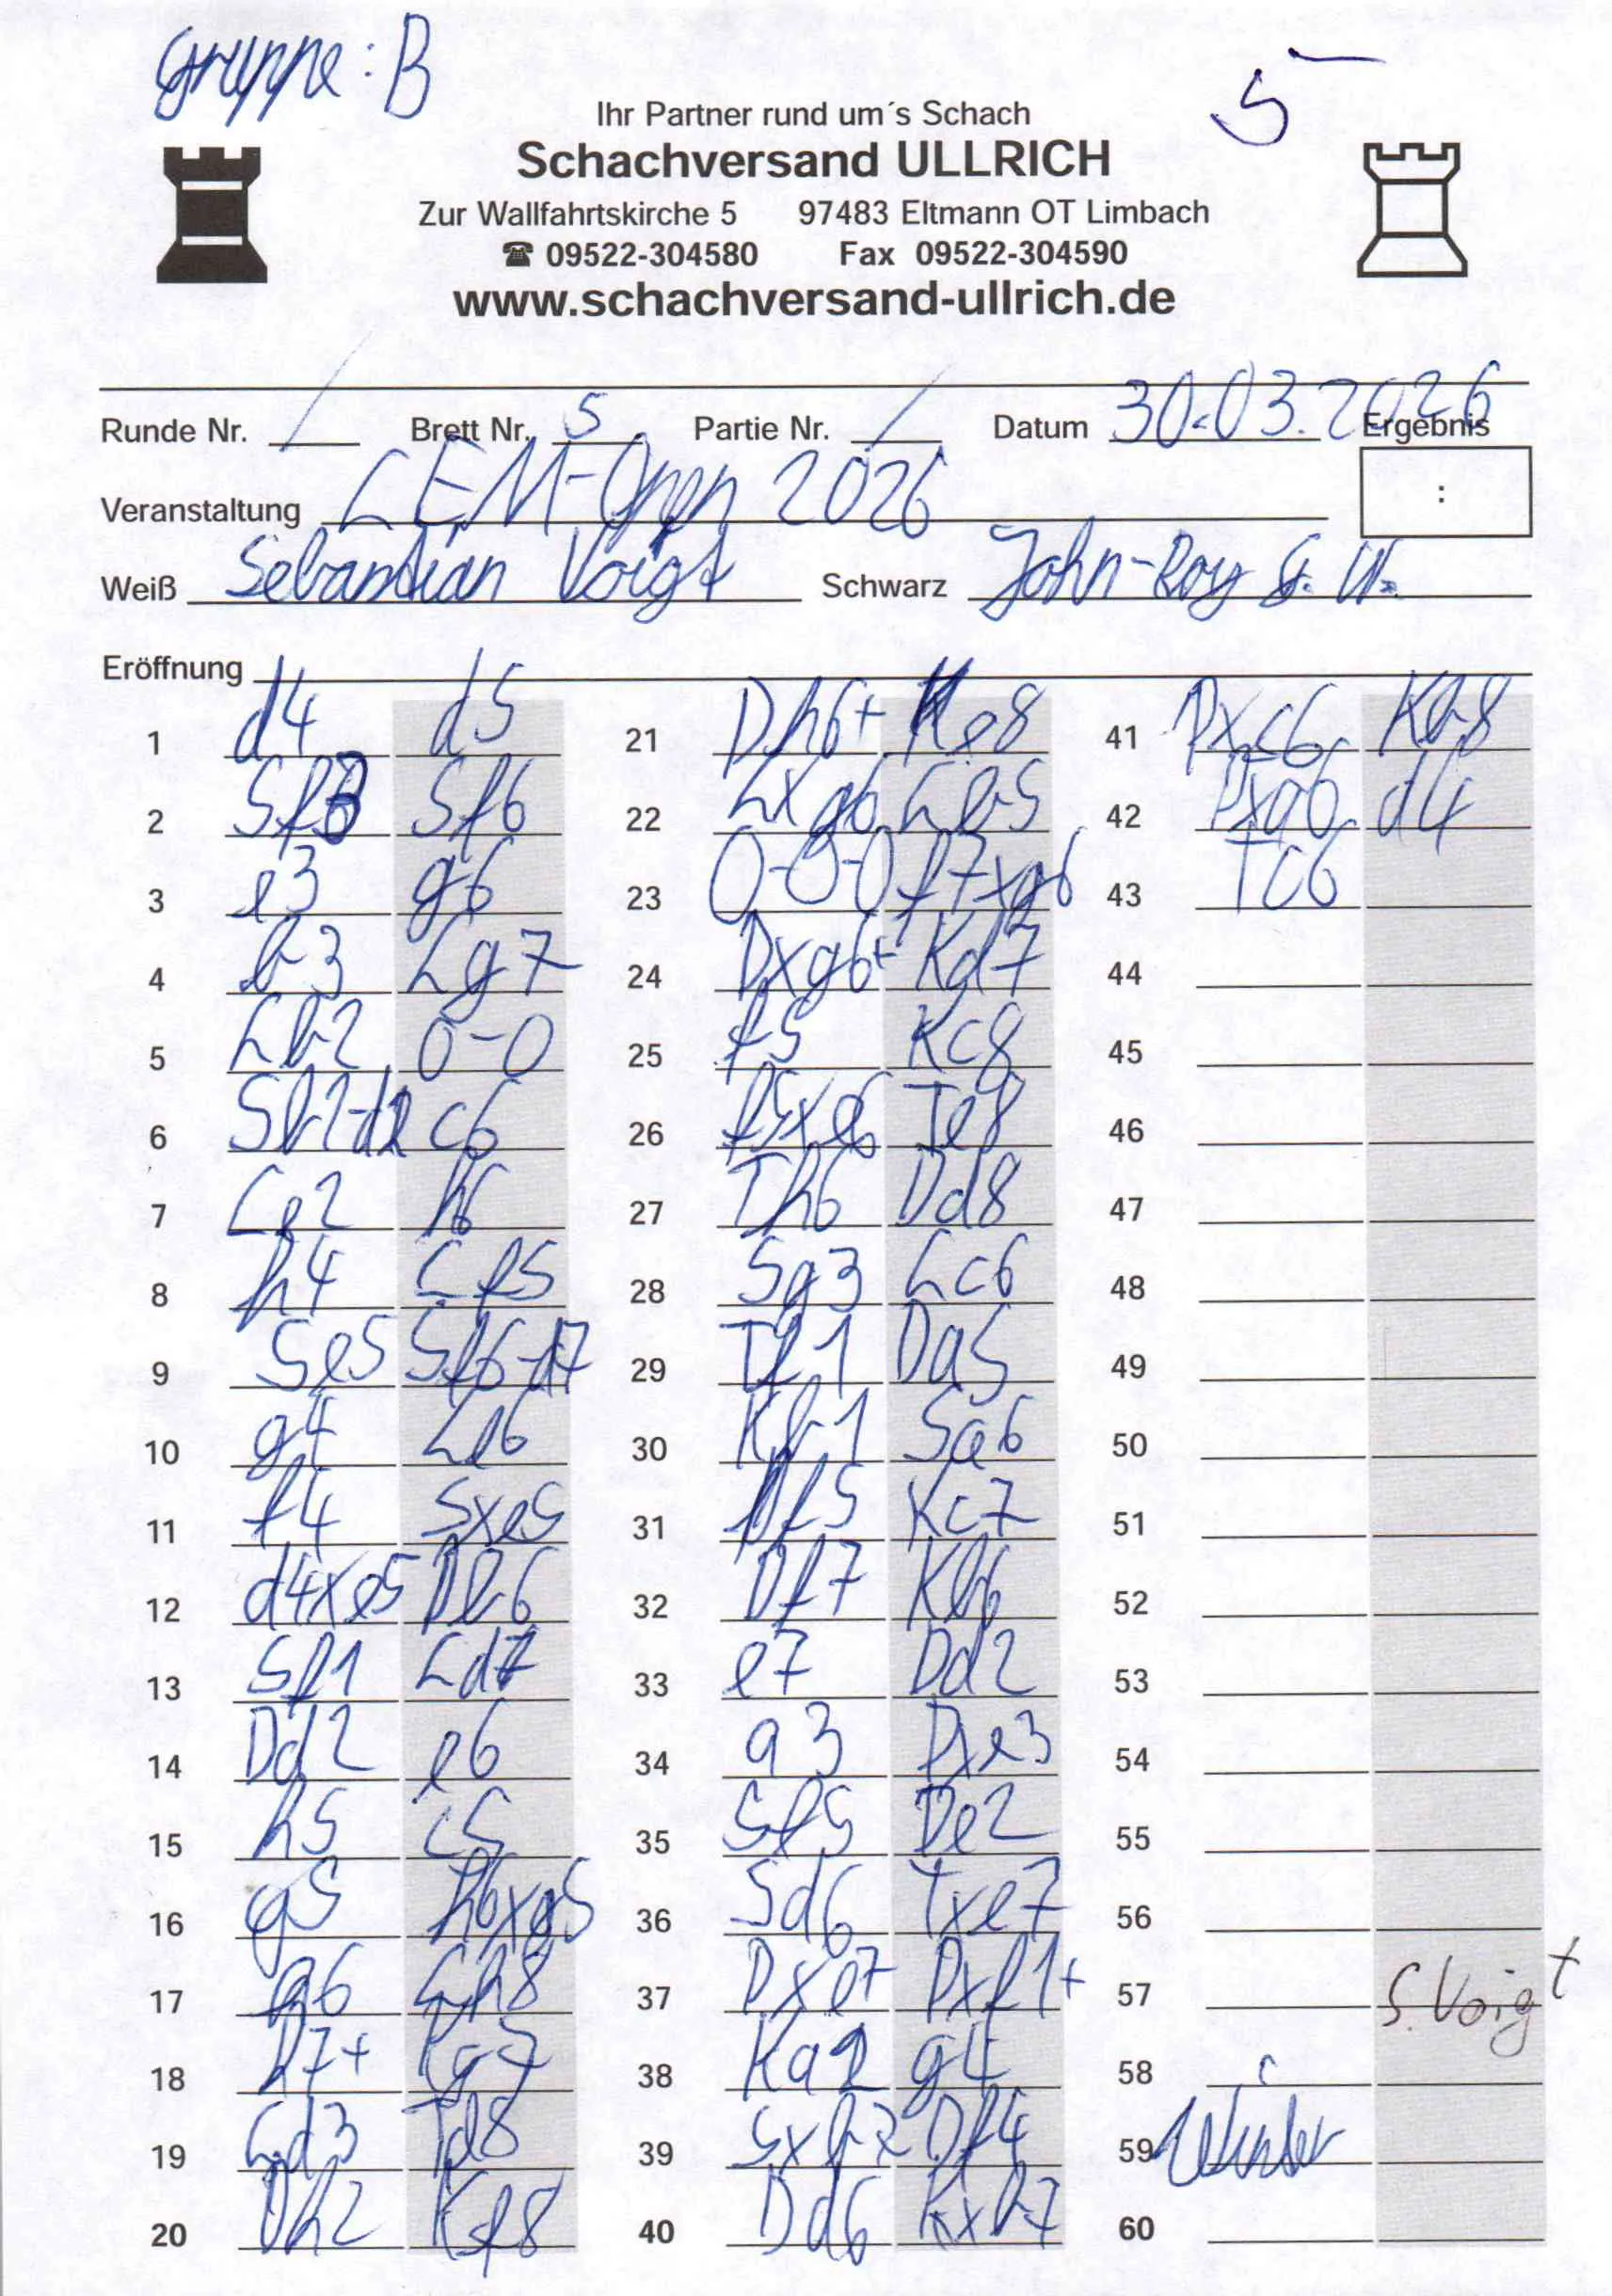 Gruppe: B
5
Ihr Partner rund um´s Schach
Schachversand ULLRICH
Zur Wallfahrtskirche 5 97483 Eltmann OT Limbach
☎ 09522-304580 Fax 09522-304590
www.schachversand-ullrich.de
Runde Nr. / Brett Nr. 5 Partie Nr. / Datum 30.03.2026 Ergebnis
Veranstaltung LEM-Open 2026 :
Weiß Sebastian Voigt Schwarz John-Roy G. W.
Eröffnung
1 d4 d5
2 Sf3 Sf6
3 e3 g6
4 b3 Lg7
5 Lb2 0-0
6 Sb1-d2 c6
7 Le2 h6
8 h4 Lf5
9 Se5 Sf6-d7
10 g4 Le6
11 f4 Sxe5
12 d4xe5 Db6
13 Sf1 Ld7
14 Dd2 e6
15 h5 c5
16 g5 h6xg5
17 h6 Lh8
18 h7+ Kg7
19 Ld3 Td8
20 Dh2 Kf8
21 Dh6+ Ke8
22 Lxg6 Lb5
23 0-0-0 f7xg6
24 Dxg6+ Kd7
25 f5 Kc8
26 f5xe6 Te8
27 Th6 Dd8
28 Sg3 Lc6
29 Tf1 Da5
30 Kb1 Sa6
31 Df5 Kc7
32 Df7 Kb6
33 e7 Dd2
34 a3 Dxe3
35 Sf5 De2
36 Sd6 Txe7
37 Dxe7 Dxf1+
38 Ka2 g4
39 Sxb7 Df4
40 Dd6 Kxb7
41 Dxc6 Kb8
42 Dxa6 d4
43 Tc6
44
45
46
47
48
49
50
51
52
53
54
55
56
57 S. Voigt
58
59 Winter
60